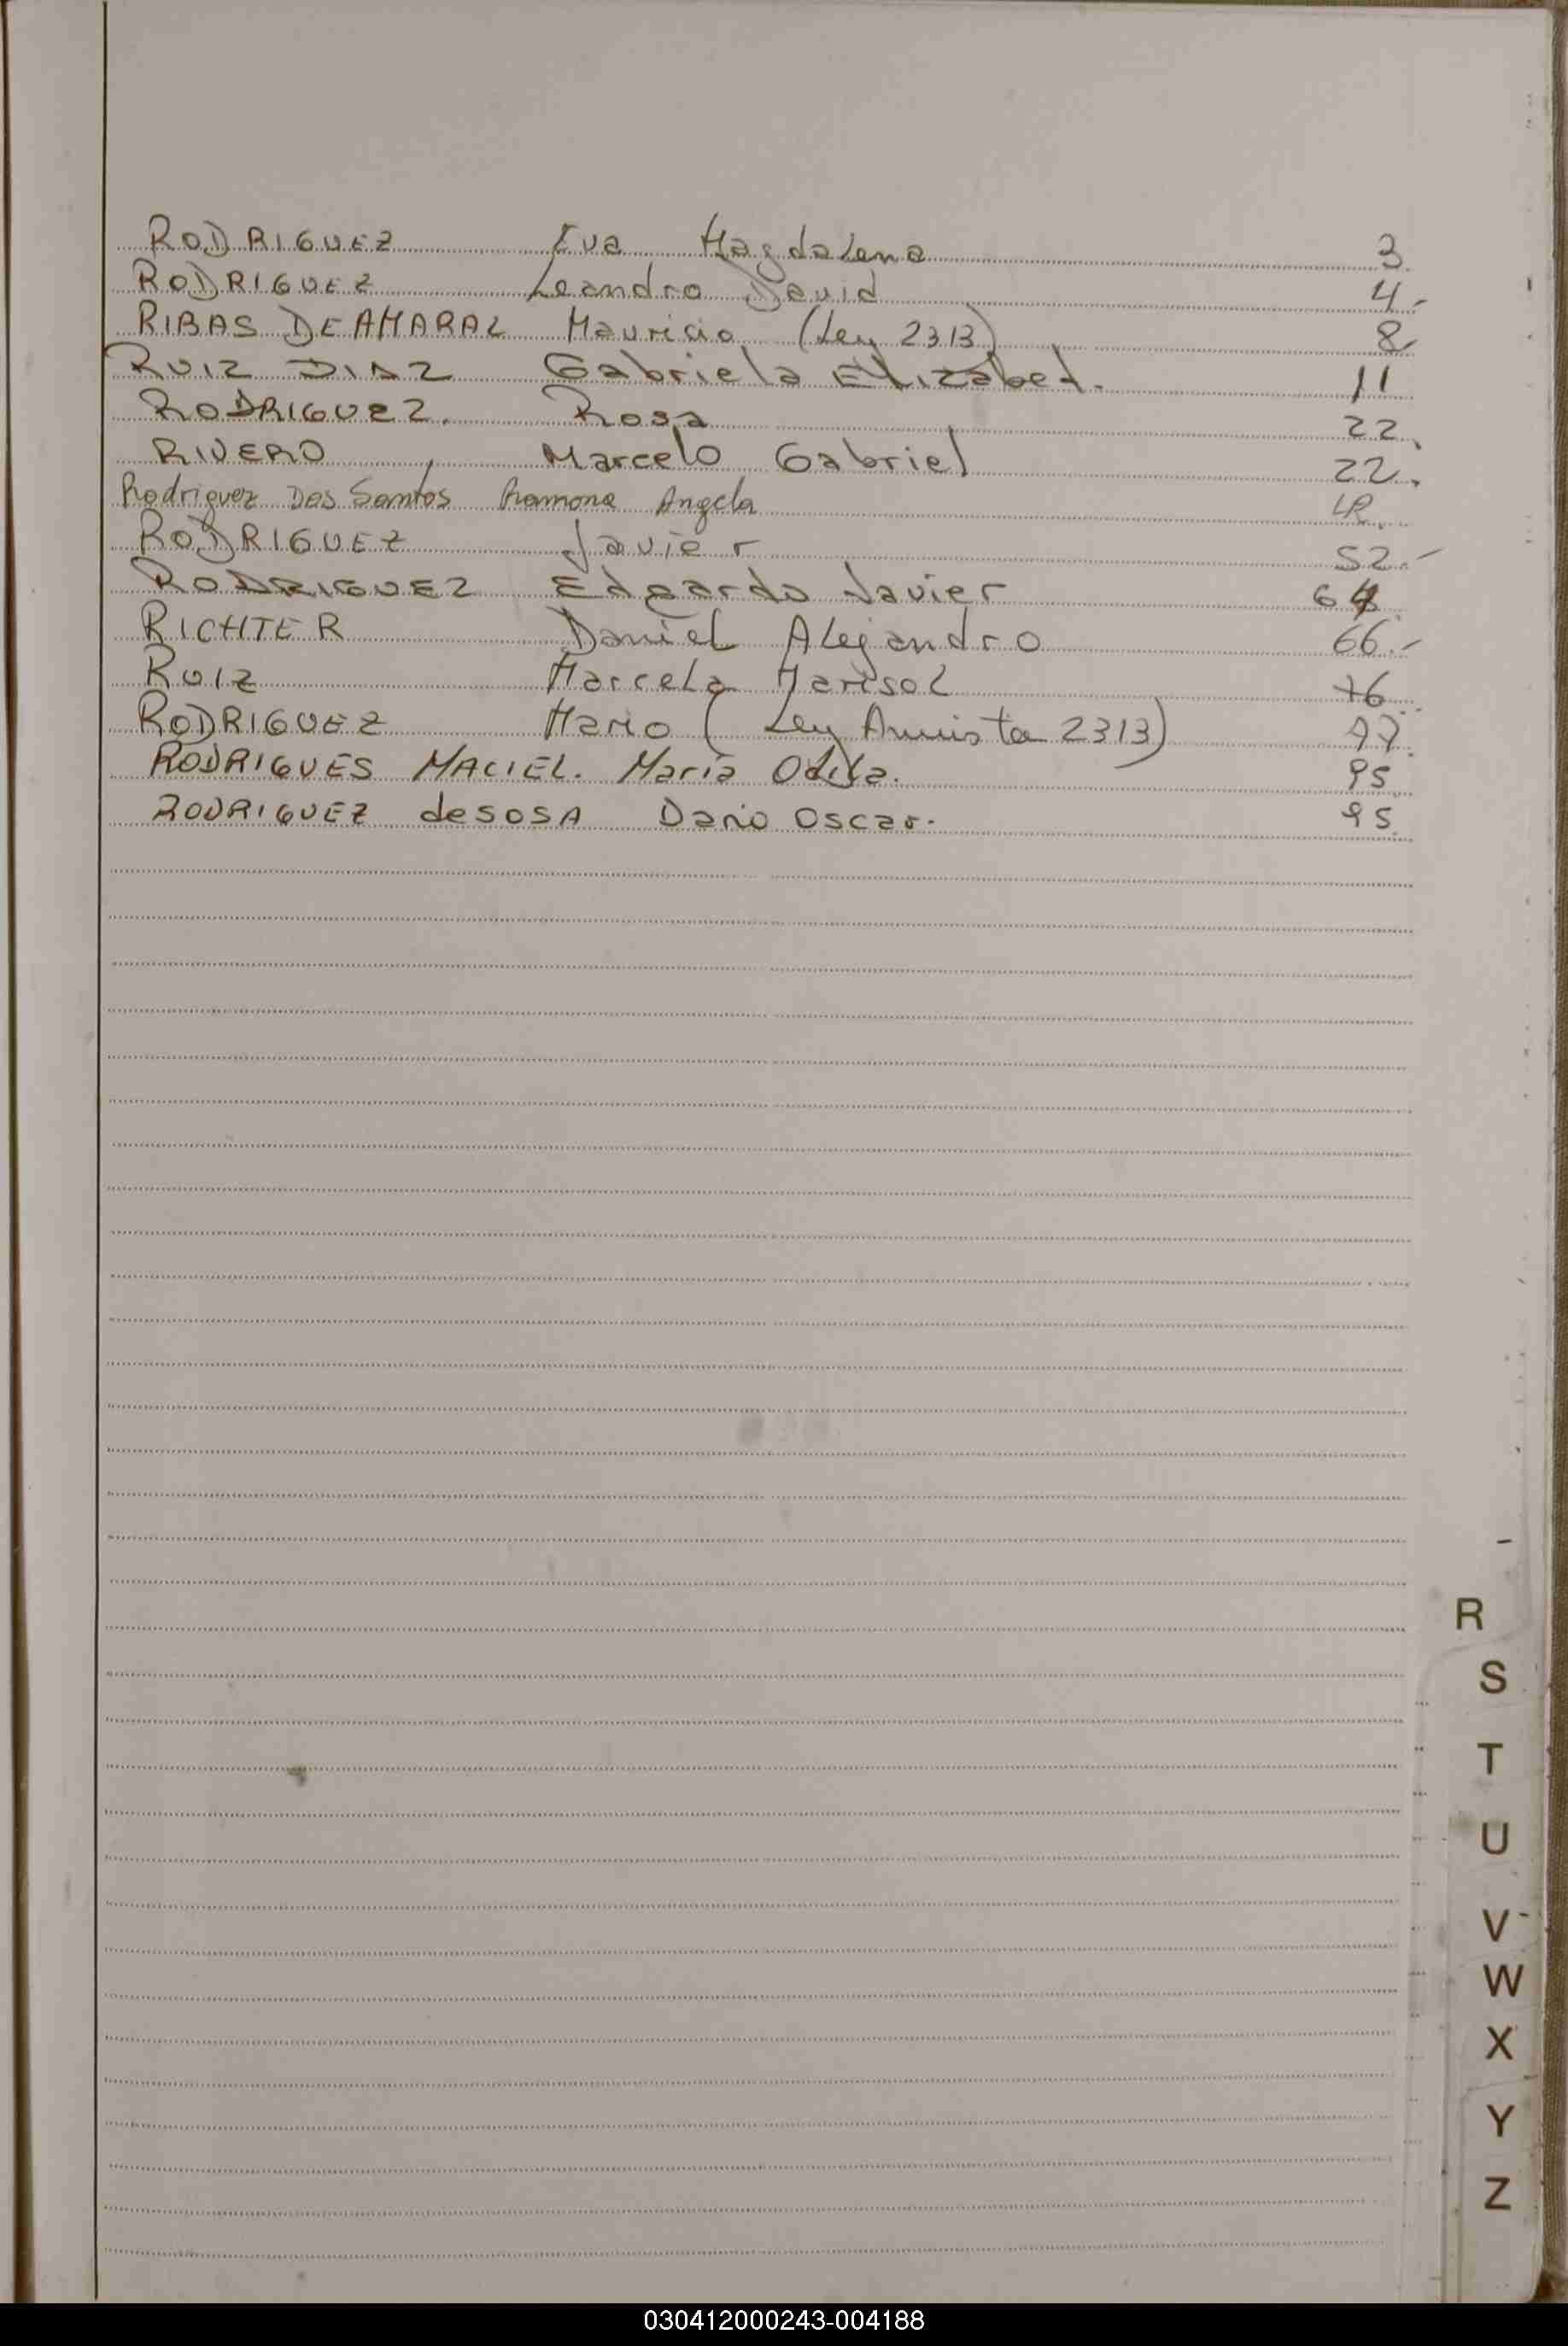 RODRIGUEZ Eva Magdalena 3
RODRIGUEZ Leandro David 4.-
RIBAS DE AMARAL Mauricio (Ley 2313) 8
RUIZ DIAZ Gabriela Elizabet. 11
RODRIGUEZ. Rosa 22.
RIVERO, Marcelo Gabriel 22.
Rodriguez Dos Santos Ramona Angela
RODRIGUEZ Javier 52.-
RODRIGUEZ Edgardo Javier
RICHTER Daniel Alejandro 66.-
RUIZ Marcela Marisol 76
RODRIGUEZ Mario (Ley Amnista 2313)
RODRIGUES MACIEL. María Odila. 95
RODRIGUEZ de SOSA Dario Oscar. 95
R
S
T
U
V
W
X
Y
Z
030412000243-004188